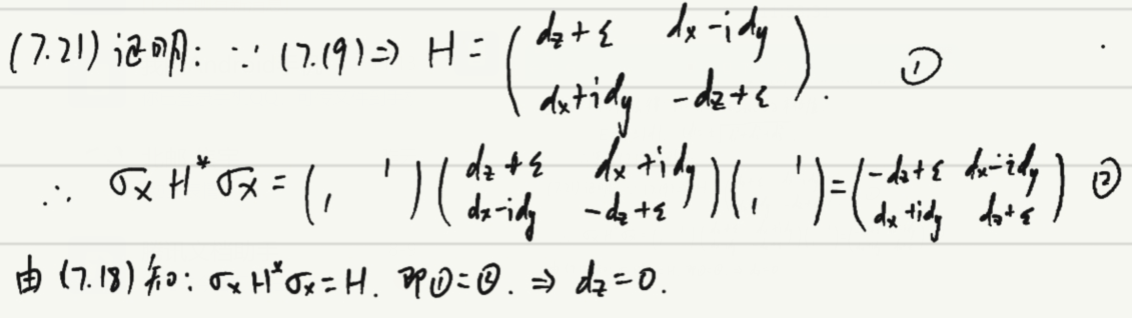 (7.21) 证明: ∵ (7.19) ⇒ H = ( dz+ε dx-idy ; dx+idy -dz+ε ). ①
∴ σx H* σx = ( 1 ; 1 ) ( dz+ε dx+idy ; dx-idy -dz+ε ) ( 1 ; 1 ) = ( -dz+ε dx-idy ; dx+idy dz+ε ) ②
由 (7.18) 知: σx H* σx = H. 即①=②. ⇒ dz=0.